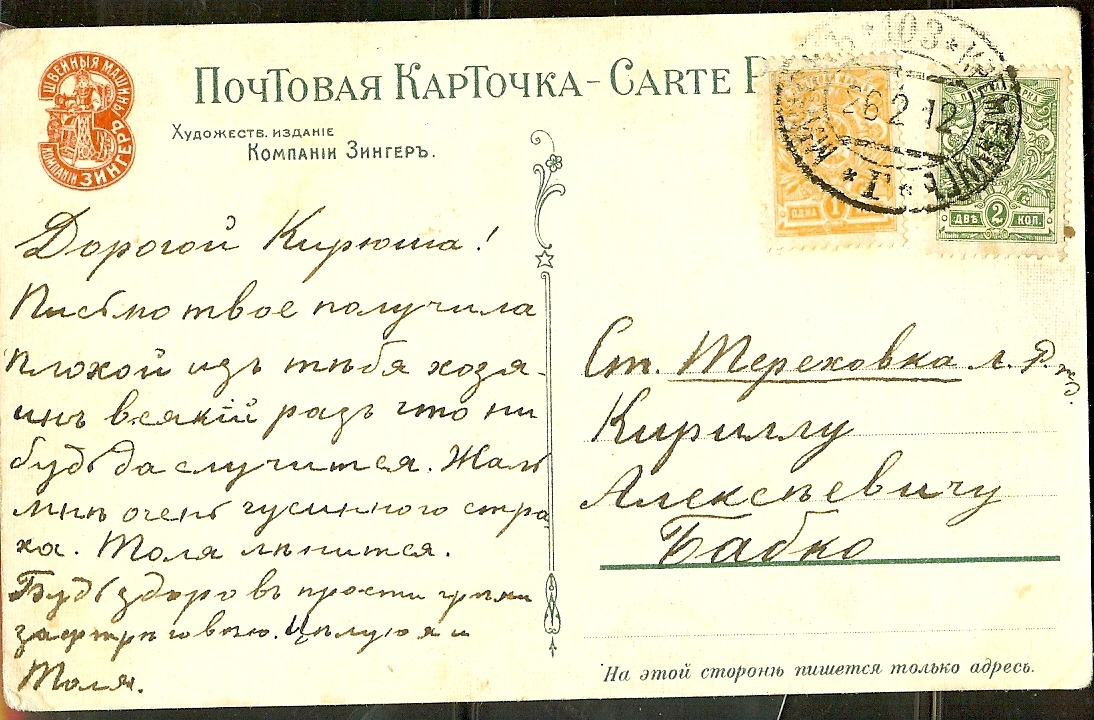 ШВЕЙНЫЯ МАШИНЫ
КОМПАНІИ ЗИНГЕРЪ
ПОЧТОВАЯ КАРТОЧКА – CARTE P
ХУДОЖЕСТВ. ИЗДАНІЕ
КОМПАНІИ ЗИНГЕРЪ.
103
26 2 12
ОДНА 1
ДВѢ 2 КОП.
Дорогой Кирюша!
Письмо твое получила
плохой изъ тѣбя хозя-
инъ всякій разъ что ни
будь да случится. Жаль
мнѣ очень гусинного стра
ха. Толя лѣнится.
Будь здоровъ прости
Цѣлую я и
Толя.
Ст. Тереховка
Кириллу
Алексѣевичу
Бабко
На этой сторонѣ пишется только адресъ.